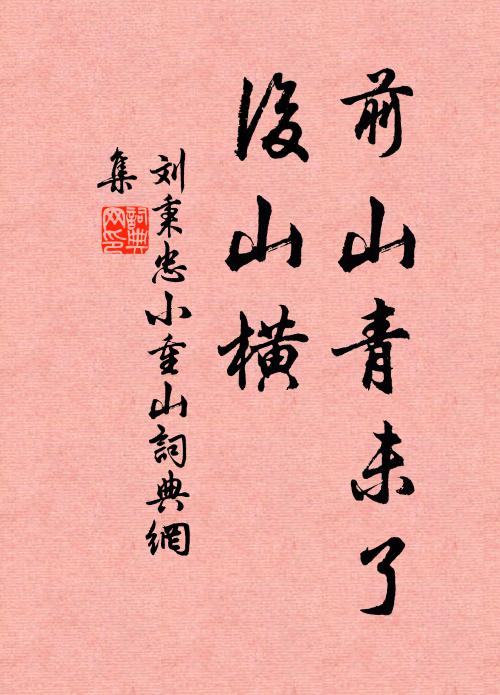 前山青未了
後山橫
刘秉忠小重山詞典網
集
詞典
网印